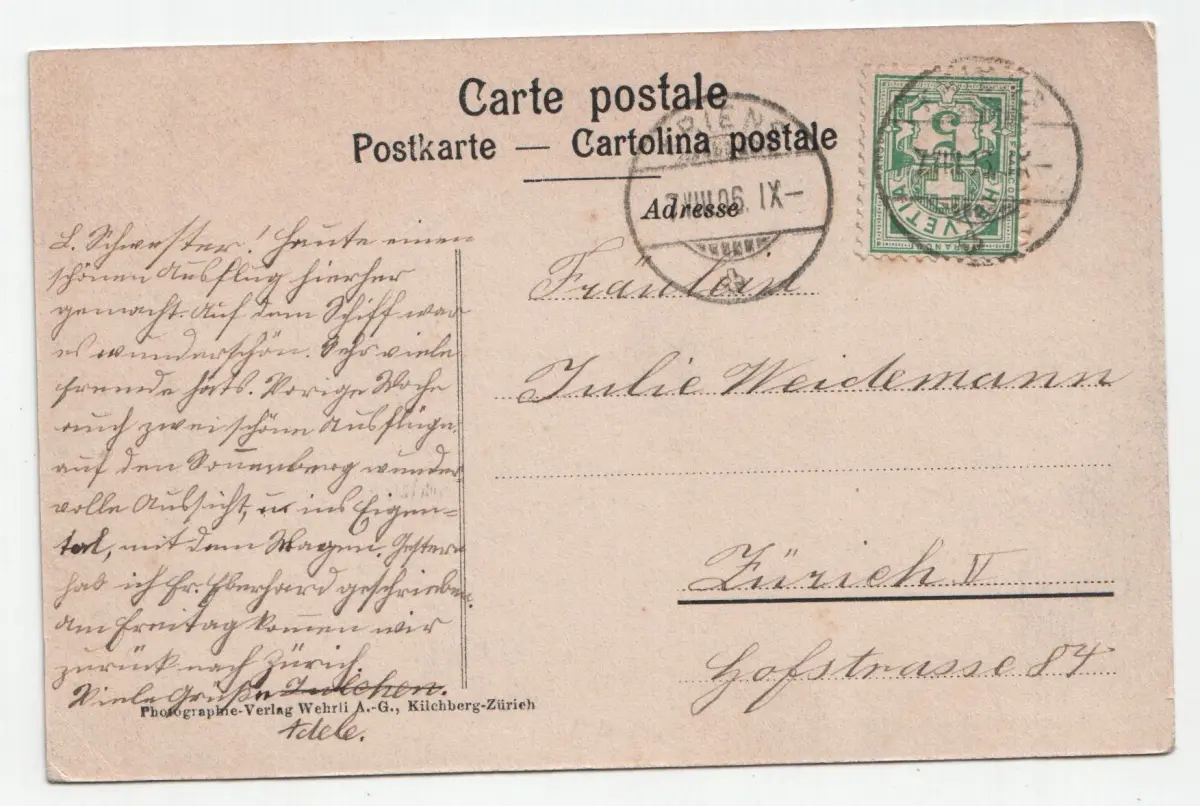 Carte postale
Postkarte — Cartolina postale
Adresse
VIII.06. IX–
5
FRANCO
HELVETIA
FRANCO
L. Schwester! Heute einen
schönen Ausflug hierher
gemacht. Auf dem Schiff war
es wunderschön. Sehr viele
fremde hats. Vorige Woche
auch zwei schöne Ausflüge.
auf den Sonnenberg wunder
volle Aussicht, u. ins Eigen=
tal, mit dem Wagen. Gestern
hab ich Fr. Eberhard geschrieben.
Am Freitag kommen wir
zurück nach Zürich.
Viele Grüße Julchen.
Adele.
Photographie-Verlag Wehrli A.-G., Kilchberg-Zürich
Fräulein
Julie Weidemann
Zürich V
Hofstrasse 84